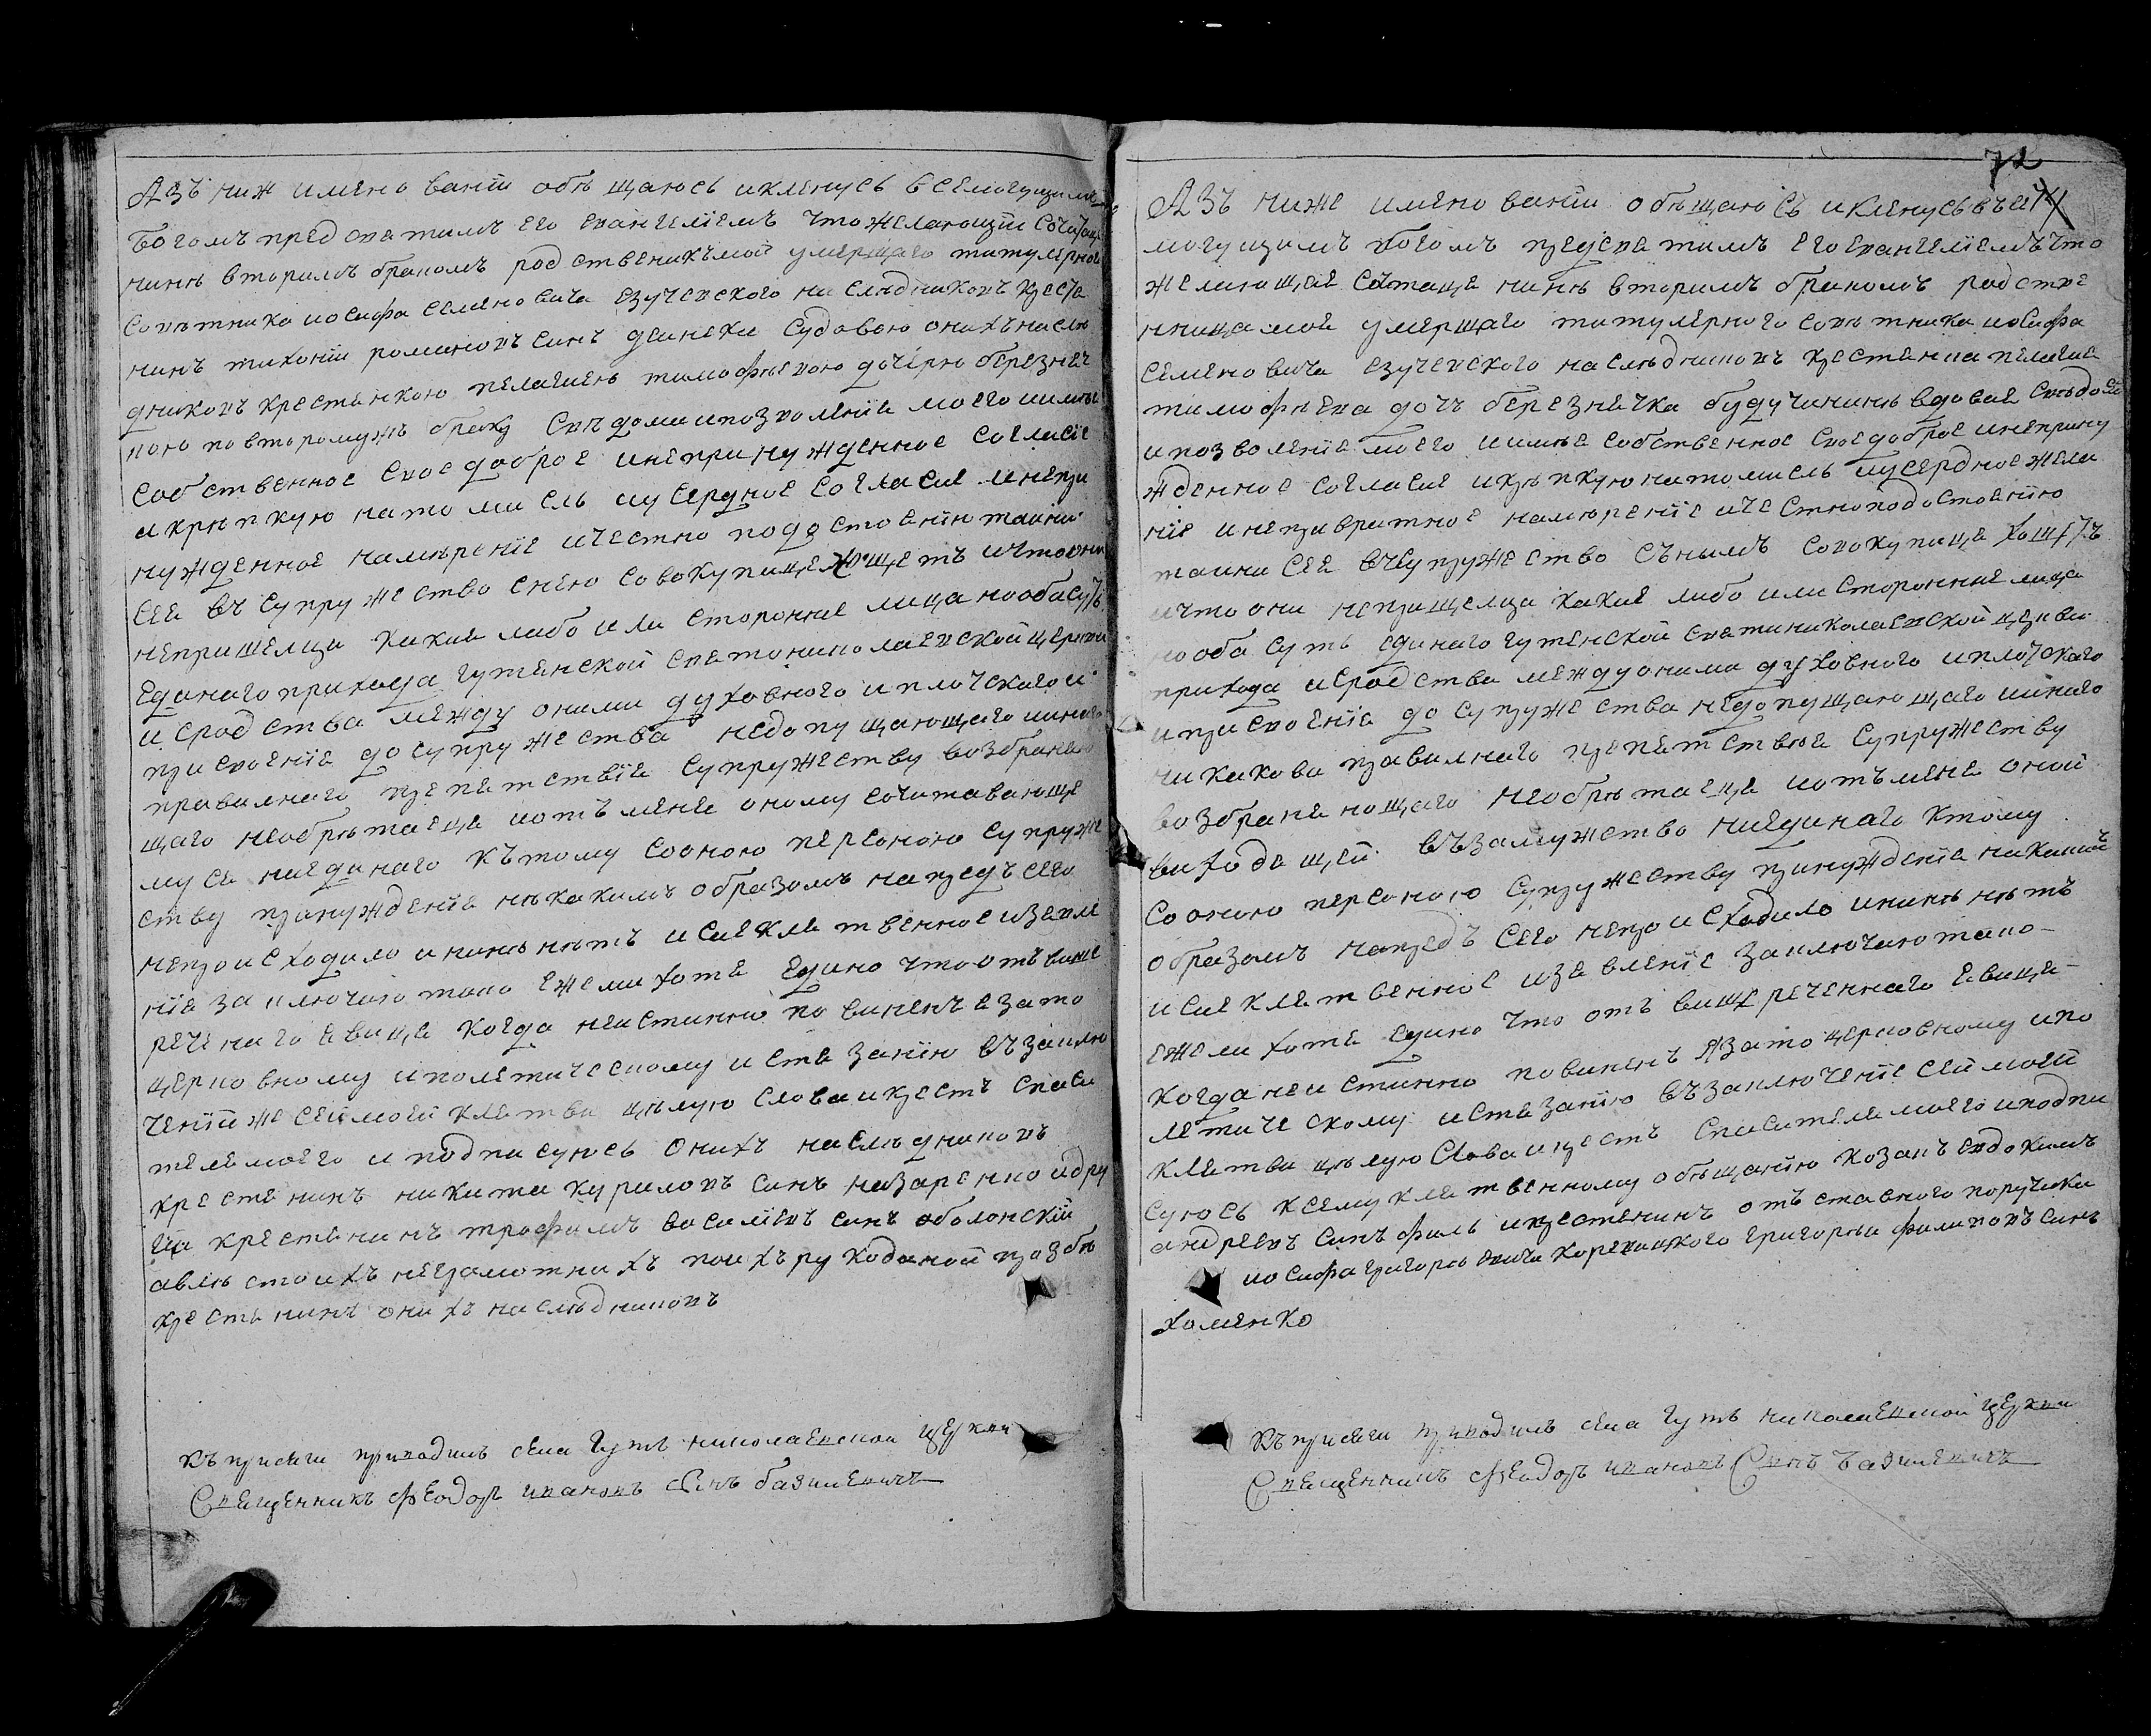 Азъ ниж имено ваній обѣщаюсь и кленусь всемогущимъ
Богомъ пред сватимъ его евангеліемъ что желающій сочітаце
нинѣ вторимъ бракомъ родственикъ мой умершаго титулярного
совѣтника иосифа семеновича езучевского наслѣдниковъ кресте
нинъ тихоній романовъ синъ деинека судовою онихънаслѣ
дниковъ крестянкою пелагиею тимофѣевою дочерю березнеч
кою по второмужъ браку свѣдоми ипозволеніе моего иимѣе
собственное свое доброе инепринужденное согласіе
и крѣпкую на то мисль иусердное согласие инепри
нужденное намѣреніе ичестно подостоенію таини
сея въ супружество снею совокупице хощетъ ичтоони
непришелци какие либо или сторонние лица нообасуть
единаго прихода гутянской сватониколаевской церкви
и сродства между оними духовного иплотскогои
присвоеніе до супружества недопущающаго ииного
правилного препятствіе супружеству возбраняю
щаго необрѣтаеце иотъмене оному сочитавающе
муся ниединаго къ тому сооною персоною супруже
ству принужденіе нѣкакимъ образомъ напредъ сего
непроисходило и нинѣ нѣтъ и сие клятвенное изявле
ніе заключаю тако ежели хотя едино что отъ више
реченаго явице когда неистинно повиненъ я зато
церковному иполѣтическому истязанію въ заклю
ченій же сеймоей клятви цѣлую слова икрестъ спаси
теля моего и подписуюсь онихъ наслѣдниковъ
крестянинъ никита куриловъ синъ назаренко идру
гій крестянинъ трофимъ василіевъ синъ оболонскій
авмѣсто ихъ неграмотнихъ поихърукоданой прозбѣ
крестянинъ онихъ наслѣдниковъ
къ присяги приводилъ села гутъ николаевской церкви
Священникъ Феодоръ ивановъ Синъ базилевичъ
72
Азъ ниже именованій обѣщаюсь и кленусь въсе
могущимъ богомъ предсватимъ его евангеліемъ что
желающае сочтаце нинѣ вторимъ бракомъ родстве
нница моя умершаго титулярного совѣтника иосифа
семеновича езучевского наслѣдниковъ крестянка пелагие
тимофѣева дочь березнячка будучи нинѣ вдовае свѣдоми
ипозволеніе моего иимѣе собственное свое доброе инеприну
жденное согласие икрѣпкую на то мисль иусердное жела
ніе инепривратное намѣреніе ичестно подостоенію
таини сея въ супружество сънымъ совокупице хощетъ
ичто они непришелца какие либо или сторонние лица
нооба суть единаго гутянской сватиниколаевской церкви
прихода исродства междуоними духовного иплотского
иприсвоеніе до супружества недопущающаго ииного
никакова правилнаго препятствіе супружеству
возбраняющаго необрѣтаеце иотъмене оной
виходящей въ замужество ниединаго ктому
сооною персоною супружеству принужденіе никакимъ
образомъ напредъ сего непроисходило ининѣ нѣтъ
и сие клятвенное изявленіе заключаю тако
ежели хотя едино что отъ вищереченнаго явице
когда неистинно повиненъ я зато церковному ипо
летическому истязанію въ заключеніе сей моей
клятви цѣлую слова икрестъ спасителя моего иподпи
суюсь ксему клятвенному обѣщанію козакъ евдокимъ
андреевъ синъ филь икрестянинъ отъ ставного поручика
иосифа григорѣевича корѣвицкого григорѣи филиповъ синъ
хоменко
къ присяги приводилъ села гутъ николаевской церкви
Священникъ Феодоръ ивановъ Синъ базилевичъ